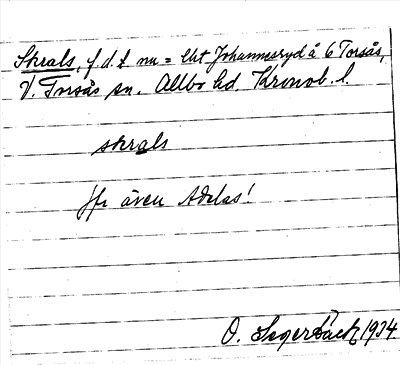 Skrals, f.d.t. nu = lht Johannesryd å 6 Torsås,
V. Torsås sn. Allbo hd. Kronob. l.
skrals
Jfr även Adelas!
O. Segerbäck 1934.